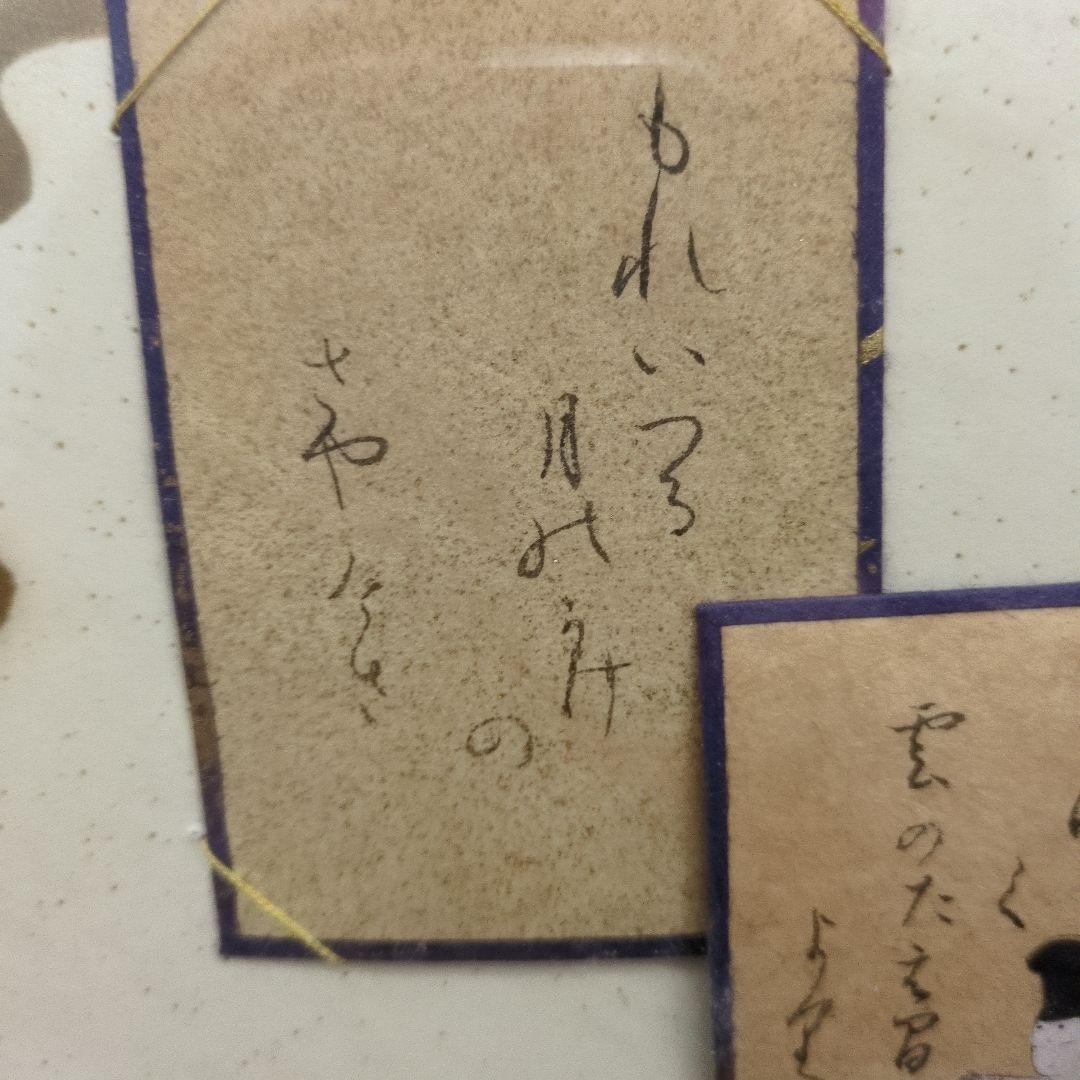 もれいつる
月のかけ
の
さやけさ
く
雲のたえ間
より